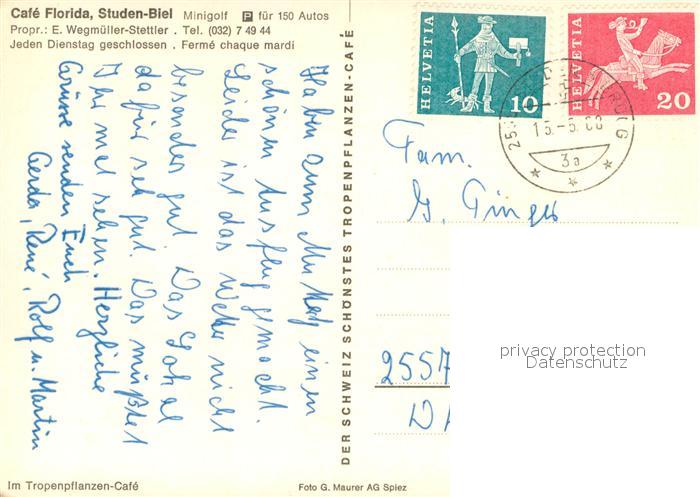 Café Florida, Studen-Biel Minigolf P für 150 Autos
Propr.: E. Wegmüller-Stettler . Tel. (032) 7 49 44
Jeden Dienstag geschlossen . Fermé chaque mardi
Haben zum Muttertag einen
schönen Ausflug gemacht.
Leider ist das Wetter nicht
besonders gut. Das Lokal
dafür sehr gut. Das müsstet
Ihr mal sehen. Herzliche
Grüsse senden Euch
Gerda, René, Rolf u. Martin
Im Tropenpflanzen-Café
DER SCHWEIZ SCHÖNSTES TROPENPFLANZEN-CAFÉ
Foto G. Maurer AG Spiez
HELVETIA
10
HELVETIA
20
3a
Fam.
2557
privacy protection
Datenschutz